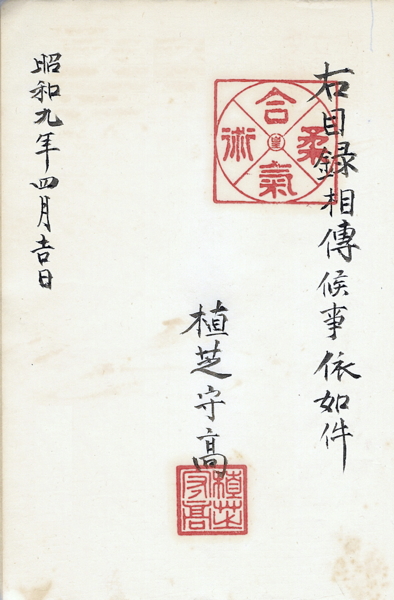 右目録相傳候事依如件
合氣柔術
植芝守高
植芝守高
昭和九年四月吉日